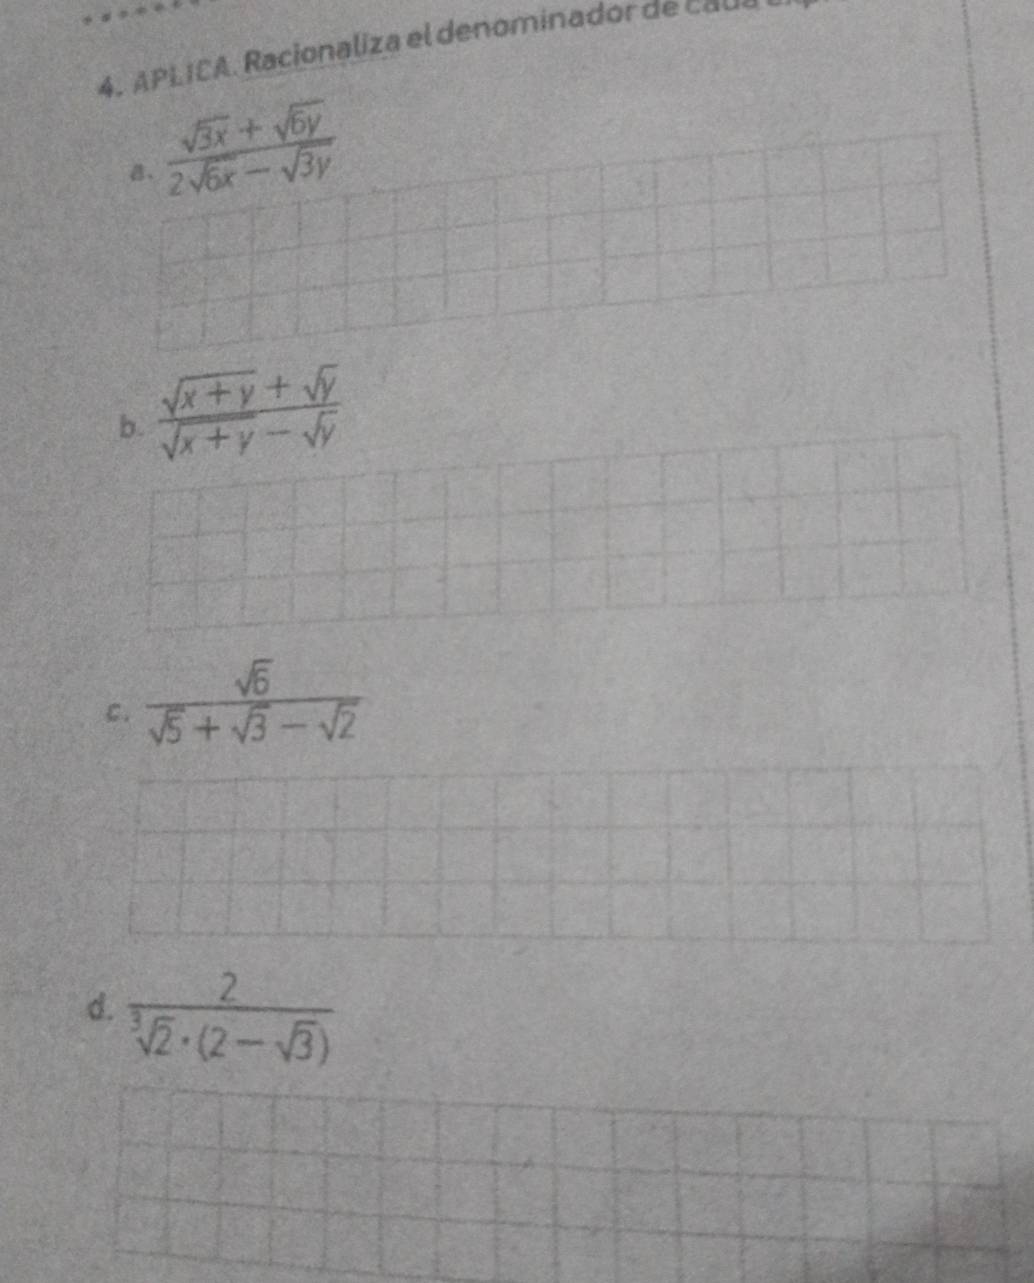 4. APLICA. Racionaliza el denominador de
a. \frac{\sqrt{3x} + \sqrt{6y}}{2\sqrt{6x} - \sqrt{3y}}
b. \frac{\sqrt{x + y} + \sqrt{y}}{\sqrt{x + y} - \sqrt{y}}
c. \frac{\sqrt{6}}{\sqrt{5} + \sqrt{3} - \sqrt{2}}
d. \frac{2}{\sqrt[3]{2} \cdot (2 - \sqrt{3})}